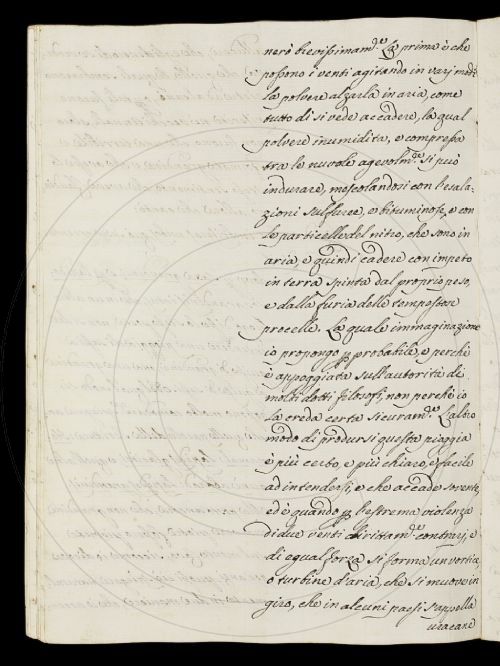 nerò brevissimam.te La prima è che
possono i venti agitando in varj modi
la polvere alzarla in aria, come
tutto dì si vede accadere, la qual
polvere inumidita, e compressa
tra le nuvole agevolm.te si può
indurare, mescolandosi con l'esala=
zioni sulfuree, e bituminose, e con
le particelle del nitro, che sono in
aria, e quindi cadere con impeto
in terra spinta dal proprio peso,
e dalla furia delle tempestose
procelle. La quale immaginazione
io propongo p probabile, e perchè
è appoggiata sull'autorità di
molti dotti filosofi, non perchè io
la creda certa sicuram.te L'altro
modo di prodursi questa piaggia
è più certo, e più chiaro, e facile
ad intendersi, e che accade sovente,
ed è quando p l'estrema violenza
di due venti dirittam.te contrarj, e
di egual forza si forma un vortice,
o turbine d'aria, che si muove in
giro, che in alcuni paesi s'appella
uracane